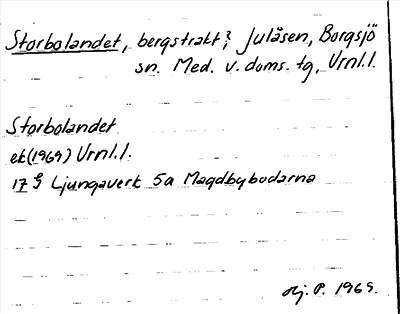 Storbolandet, bergstrakt? Julåsen, Borgsjö
sn. Med. v. doms. tg, Vrnl.l.
Storbolandet
ek(1969) Vrnl.l.
17 G Ljungaverk 5a Magdbybodarna
P. 1969.